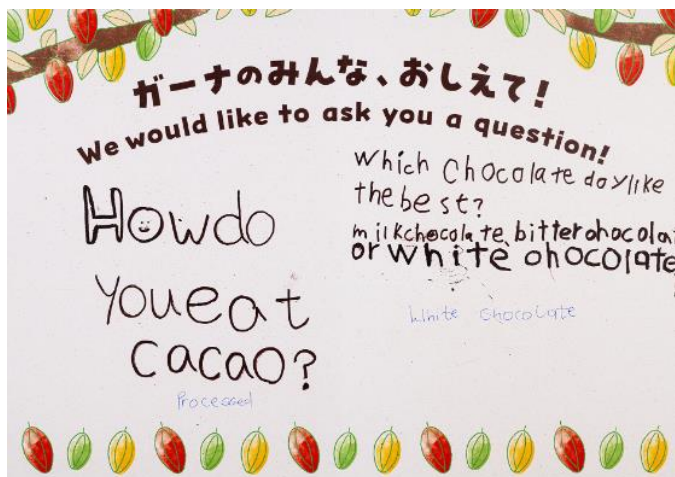 ガーナのみんな、おしえて!
We would like to ask you a question!
Howdo
youeat
cacao?
Processed
Which Chocolate daylike
the best?
milkchocolate, bitterohocolat
or white ohocolate
White Chocolate